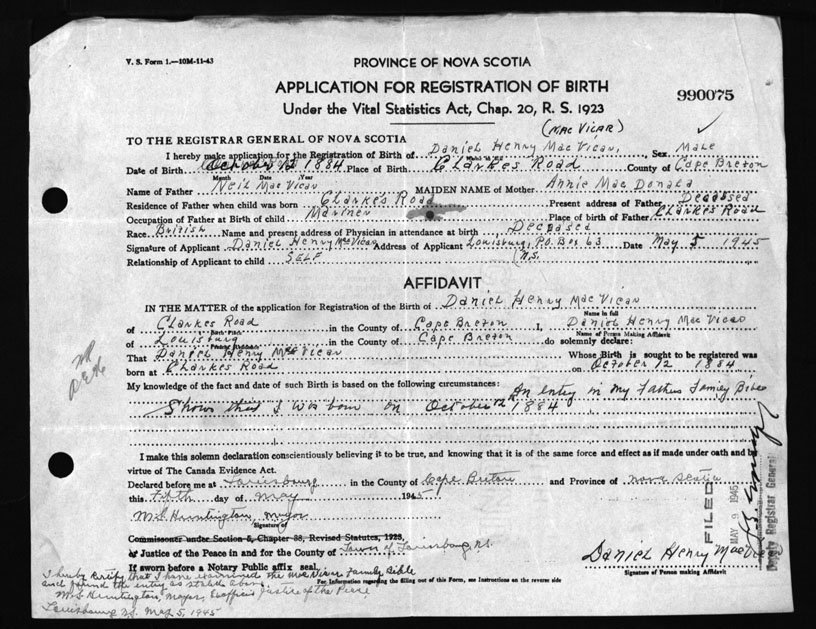 V. S. Form 1.—10M-11-43
PROVINCE OF NOVA SCOTIA
APPLICATION FOR REGISTRATION OF BIRTH
990075
Under the Vital Statistics Act, Chap. 20, R. S. 1923
(MAC VICAR)
TO THE REGISTRAR GENERAL OF NOVA SCOTIA
I hereby make application for the Registration of Birth of Daniel Henry MacVicar, Sex Male
Date of Birth October 12 1884 Place of Birth Clarkes Road County of Cape Breton
Month Date Year
Name of Father Neil MacVicar MAIDEN NAME of Mother Annie MacDonald
Residence of Father when child was born Clarkes Road Present address of Father Deceased
Occupation of Father at Birth of child Mariner Place of birth of Father Clarkes Road
Race British Name and present address of Physician in attendance at birth Deceased
Signature of Applicant Daniel Henry MacVicar Address of Applicant Louisburg, P.O. Box 63 Date May 5 1945
Relationship of Applicant to child SELF N.S.
AFFIDAVIT
IN THE MATTER of the application for Registration of the Birth of Daniel Henry MacVicar
Name in full
of Clarkes Road in the County of Cape Breton I, Daniel Henry MacVicar
Birth Place Name of Person Making Affidavit
of Louisburg in the County of Cape Breton do solemnly declare:
That Daniel Henry MacVicar Whose Birth is sought to be registered was
born at Clarkes Road on October 12 1884
My knowledge of the fact and date of such Birth is based on the following circumstances: An entry in my Fathers Family Bible
Shows that I was born on October 12 1884
I make this solemn declaration conscientiously believing it to be true, and knowing that it is of the same force and effect as if made under oath and by
virtue of The Canada Evidence Act.
Declared before me at Louisbourg in the County of Cape Breton and Province of Nova Scotia
this fifth day of May 1945
M.S. Huntington, Mayor
Signature of
Commissoner under Section 5, Chapter 38, Revised Statutes, 1923,
or Justice of the Peace in and for the County of Town of Louisbourg, N.S.
If sworn before a Notary Public affix seal.
Daniel Henry MacVicar
Signature of Person making Affidavit
For Information regarding the filling out of this Form, see Instructions on the reverse side
I hereby certify that I have examined the MacVicar Family Bible
and found the entry as stated above
M.S. Huntington, Mayor, Exofficio Justice of the Peace
Louisbourg N.S. May 5, 1945
FILED
MAY 9 1945
Deputy Registrar General